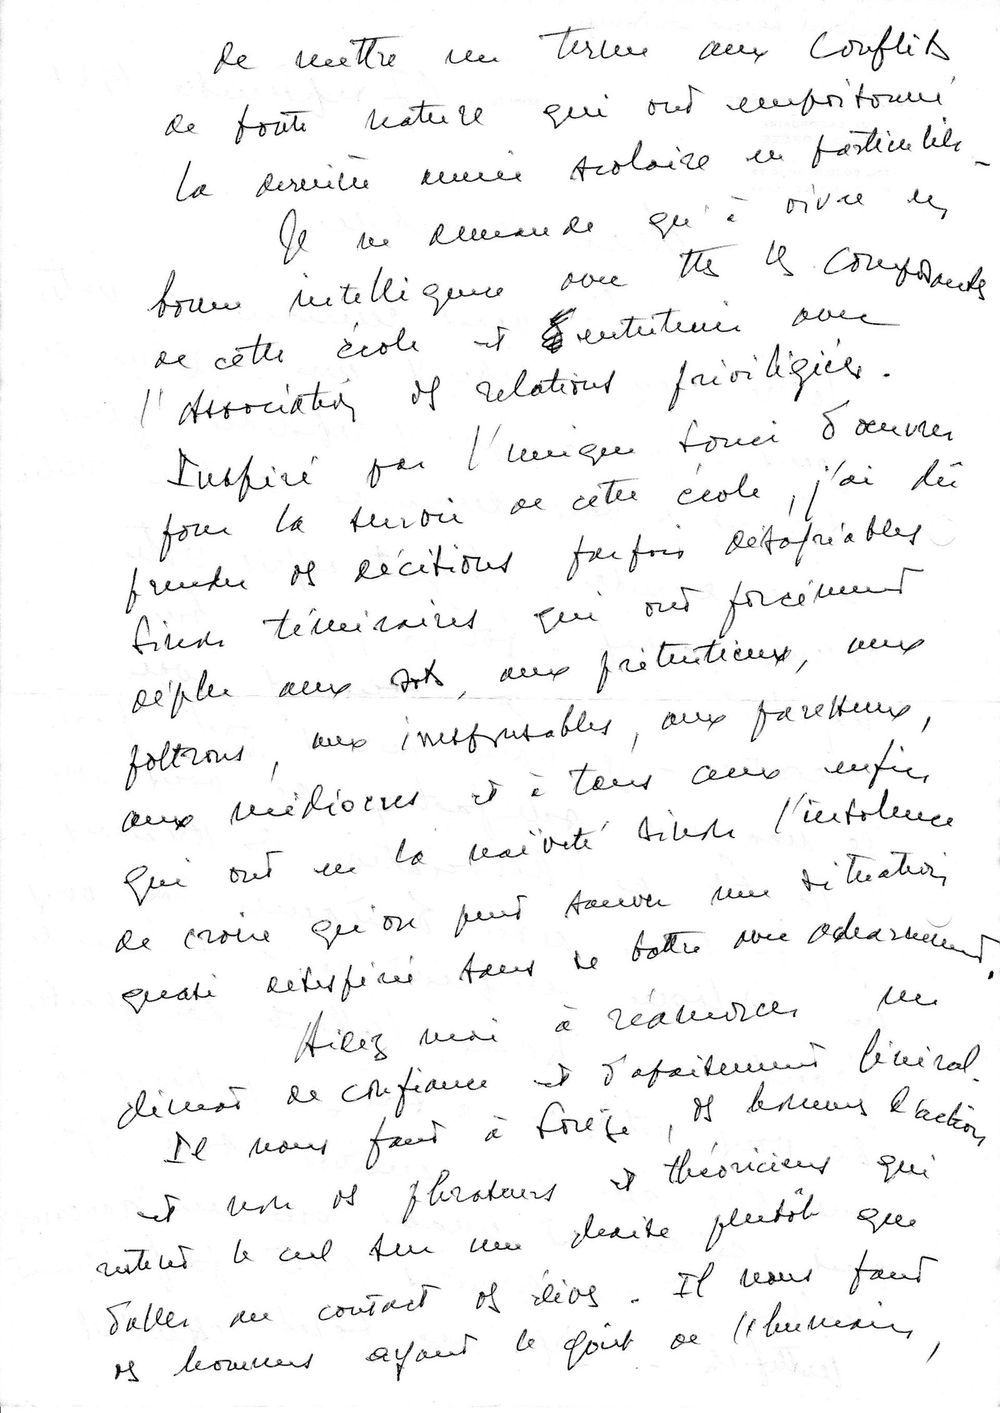 de mettre un terme aux conflits
de toute nature qui ont empoisonné
la dernière année scolaire en particulier.
Je ne demande qu'à vivre en
bonne intelligence avec tts les composants
de cette école et entretenir avec
l'Association des relations privilégiées.
Inspiré par l'unique souci d'oeuvrer
pour la survie de cette école, j'ai dû
prendre des décisions parfois désagréables
sinon téméraires qui ont forcément
déplu aux sots, aux prétentieux, aux
poltrons, aux irresponsables, aux paresseux,
aux médiocres et à tous ceux enfin
qui ont eu la naïveté sinon l'insolence
de croire qu'on peut sauver une situation
quasi désespérée sans se battre avec acharnement.
Aidez moi à réamorcer un
climat de confiance et d'apaisement général.
Il nous faut à Sorèze, des hommes d'action
et non des phraseurs et théoriciens qui
restent le cul sur une chaise plutôt que
d'aller au contact des élèves. Il nous faut
des hommes ayant le goût de l'humain,